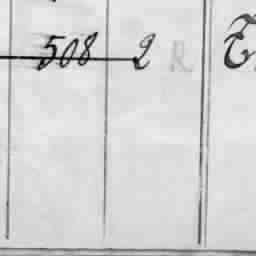 508 2 R